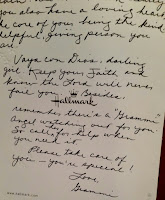 you also have a loving hea
the core of your being the kind
helpful, giving person you
are.
Vaya con Dios, darling
girl. Keep your Faith and
know the Lord will never
fail you. Besides,
Hallmark
remember there's a Grammi
Angel watching out for you
So call for help when
you need it.
Please take care of
you - you're special!
Love
Grammi